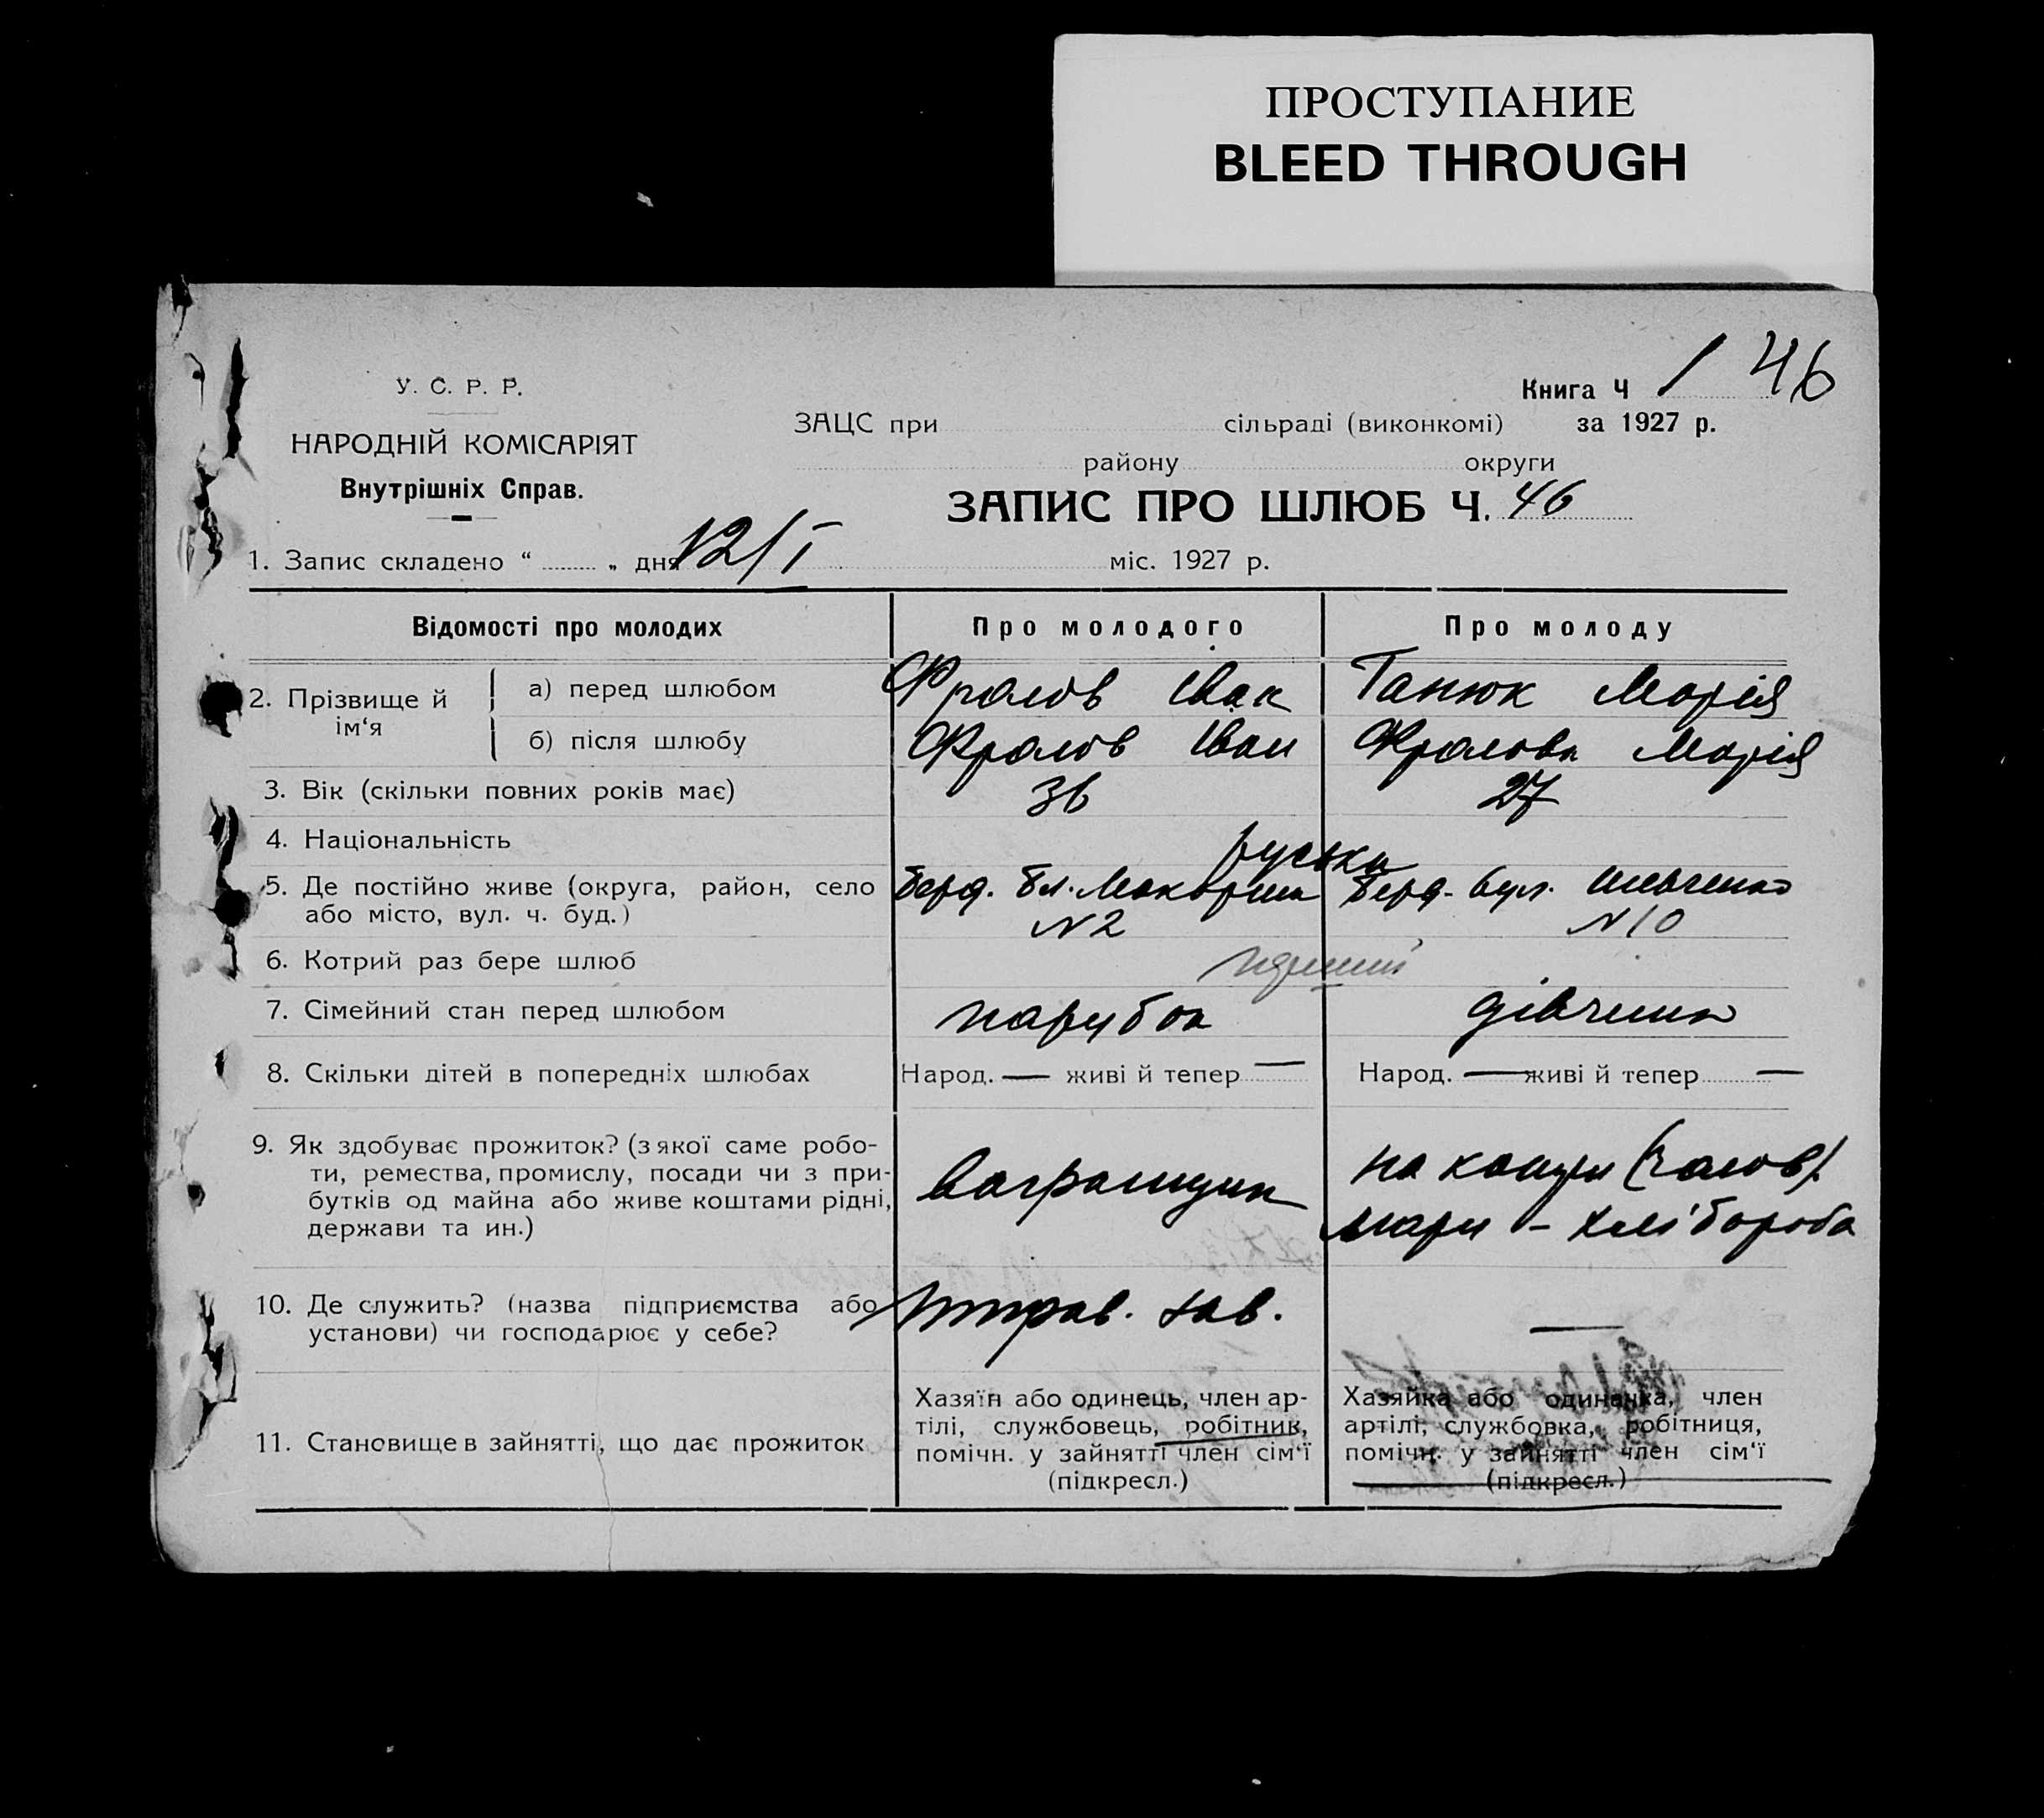 ПРОСТУПАНИЕ
BLEED THROUGH
1 46
У. С. Р. Р.
Книга Ч
ЗАЦС при сільраді (виконкомі) за 1927 р.
НАРОДНІЙ КОМІСАРІЯТ
району округи
Внутрішніх Справ.
ЗАПИС ПРО ШЛЮБ Ч. 46
1. Запис складено “ „ дня 12/I міс. 1927 р.
Відомості про молодих Про молодого Про молоду
2. Прізвище й ім‘я
а) перед шлюбом Фролов Іван Ганюк Марія
б) після шлюбу Фролов Іван Фролова Марія
3. Вік (скільки повних років має) 36 27
4. Національність руськи
5. Де постійно живе (округа, район, село Берд. Берд. вул. Шевченко
або місто, вул. ч. буд.) N2 N10
6. Котрий раз бере шлюб перший
7. Сімейний стан перед шлюбом парубок дівчина
8. Скільки дітей в попередніх шлюбах Народ. — живі й тепер — Народ. — живі й тепер —
9. Як здобуває прожиток? (з якої саме робо-
ти, ремества, промислу, посади чи з при-
бутків од майна або живе коштами рідні,
держави та ин.)
Вагранщик
на кошти
– хлібороба
10. Де служить? (назва підприємства або
установи) чи господарює у себе?
зав. —
11. Становище в зайнятті, що дає прожиток
Хазяїн або одинець, член ар-
тілі, службовець, робітник,
помічн. у зайнятті член сім‘ї
(підкресл.)
Хазяйка або одиначка, член
артілі, службовка, робітниця,
помічн. у зайнятті член сім‘ї
(підкресл.)